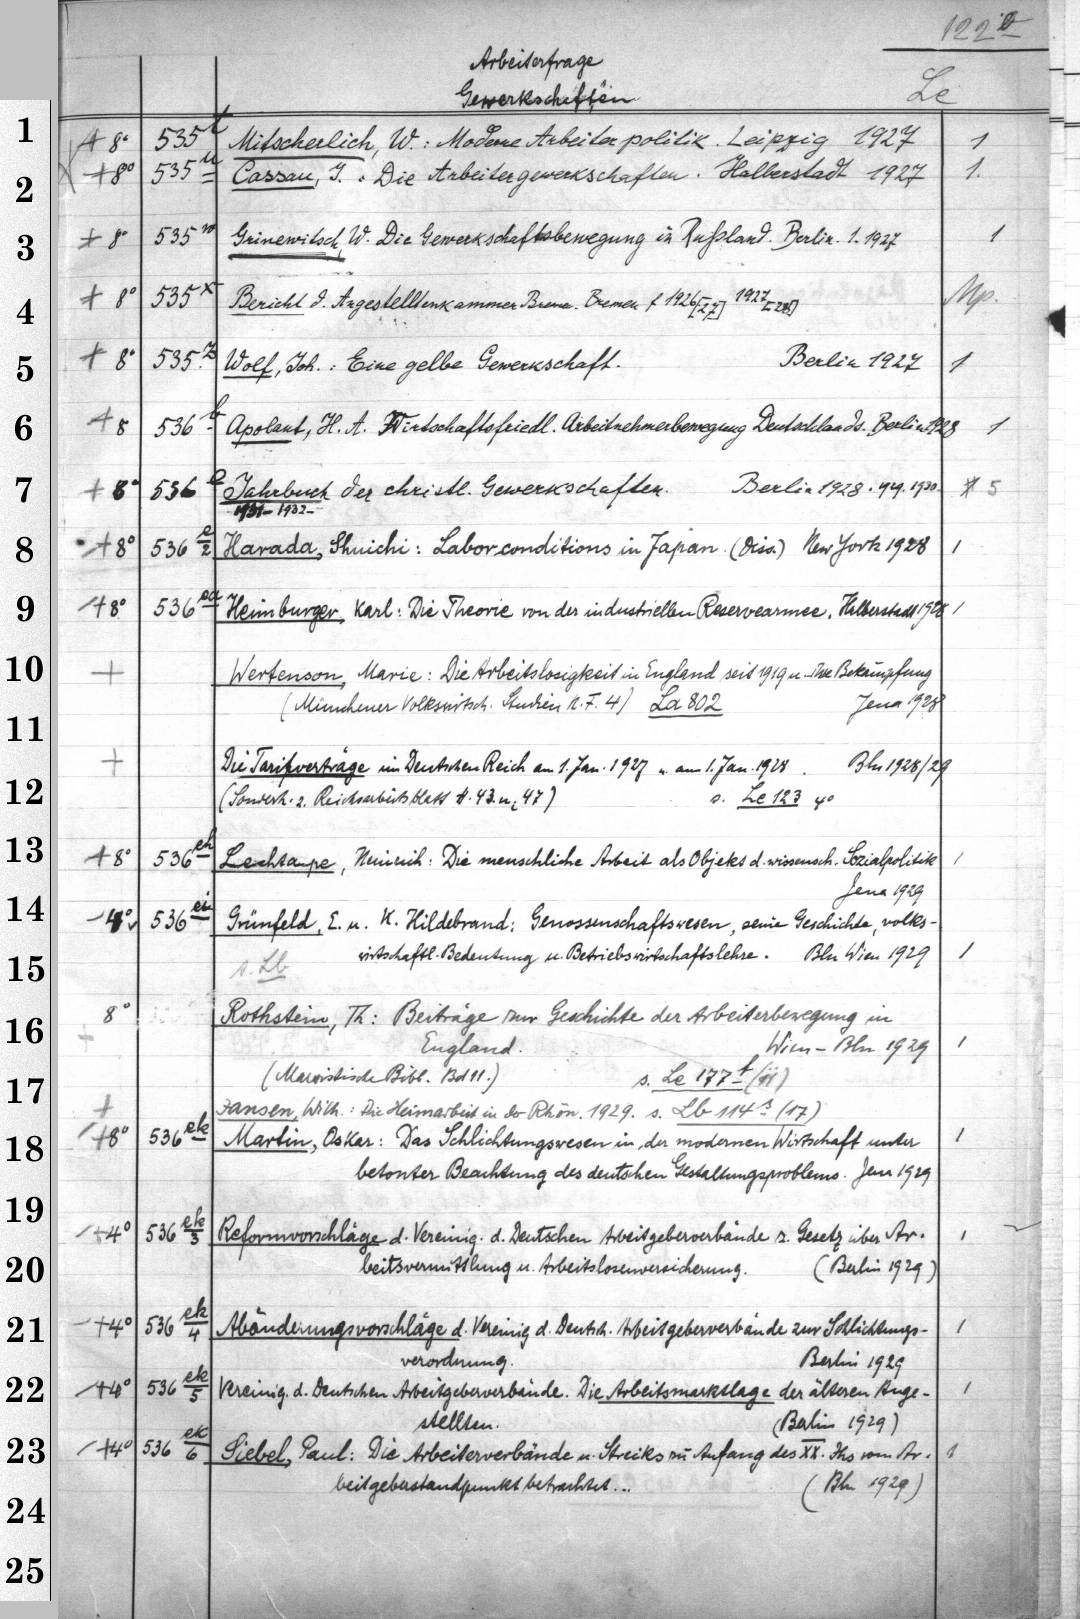 122
Arbeiterfrage
Gewerkschaften
Le
1 + 8° 535 t Mitscherlich, W.: Moderne Arbeiterpolitik. Leipzig 1927 1
2 + 8° 535 u Cassau, J.: Die Arbeitergewerkschaften. Halberstadt 1927 1.
3 + 8° 535 w Grinewitsch, W. Die Gewerkschaftsbewegung in Rußland. Berlin. 1. 1927 1
4 + 8° 535 x Bericht d. Angestelltenkammer Bremen. Bremen f 1926/[27] 1927[28] Mp.
5 + 8° 535 z Wolf, Joh.: Eine gelbe Gewerkschaft. Berlin 1927 1
6 + 8 536 b Apolant, H. A. Wirtschaftsfriedl. Arbeitnehmerbewegung Deutschlands. Berlin 1928 1
7 + 8° 536 e Jahrbuch der christl. Gewerkschaften. Berlin 1928. 1929. 1930. 5
1931- 1932-
8 + 8° 536 e/2 Harada, Shuichi: Labor conditions in Japan. (Diss.) New York 1928 1
9 + 8° 536 ea Heimburger, Karl: Die Theorie von der industriellen Reservearmee. Halberstadt 1928 1
10 + Wertenson, Marie: Die Arbeitslosigkeit in England seit 1919 u. ihre Bekämpfung
(Münchener Volkswirtsch. Studien N. F. 4) La 802 Jena 1928
11
+ Die Tarifverträge im Deutschen Reich am 1. Jan. 1927 u. am 1. Jan. 1928. Bln 1928/29
12 (Sonderh. z. Reichsarbeitsblatt H. 43. u. 47) s. Le 123 4°
13 + 8° 536 eh Lechtape, Heinrich: Die menschliche Arbeit als Objekt d. wissensch. Sozialpolitik 1
Jena 1929
14 4° 536 ei Grünfeld, E. u. K. Hildebrand: Genossenschaftswesen, seine Geschichte, volks-
15 s. Lb wirtschaftl. Bedeutung u. Betriebswirtschaftslehre. Bln Wien 1929 1
8° Rothstein, Th: Beiträge zur Geschichte der Arbeiterbewegung in
16 + England. Wien - Bln 1929 1
17 (Marxistische Bibl. Bd 11.) s. Le 177 t (11)
+ Jansen, Wilh.: Die Heimarbeit in der Rhön. 1929. s. Lb 114 s (17)
18 + 8° 536 ek Martin, Oskar: Das Schlichtungswesen in der modernen Wirtschaft unter 1
betonter Beachtung des deutschen Gestaltungsproblems. Jena 1929
19 + 4° 536 ek/3 Reformvorschläge d. Vereinig. d. Deutschen Arbeitgeberverbände z. Gesetz über Ar- 1
20 beitsvermittlung u. Arbeitslosenversicherung. (Berlin 1929)
21 + 4° 536 ek/4 Abänderungsvorschläge d. Vereinig d. Deutsch. Arbeitgeberverbände zur Schlichtungs- 1
verordnung. Berlin 1929
22 + 4° 536 ek/5 Vereinig. d. Deutschen Arbeitgeberverbände. Die Arbeitsmarktlage der älteren Ange- 1
stellten. (Berlin 1929)
23 + 4° 536 ek/6 Siebel, Paul: Die Arbeiterverbände u. Streiks zu Anfang des XX. Jhs vom Ar- 1
24 beitgeberstandpunkt betrachtet... (Bln 1929)
25